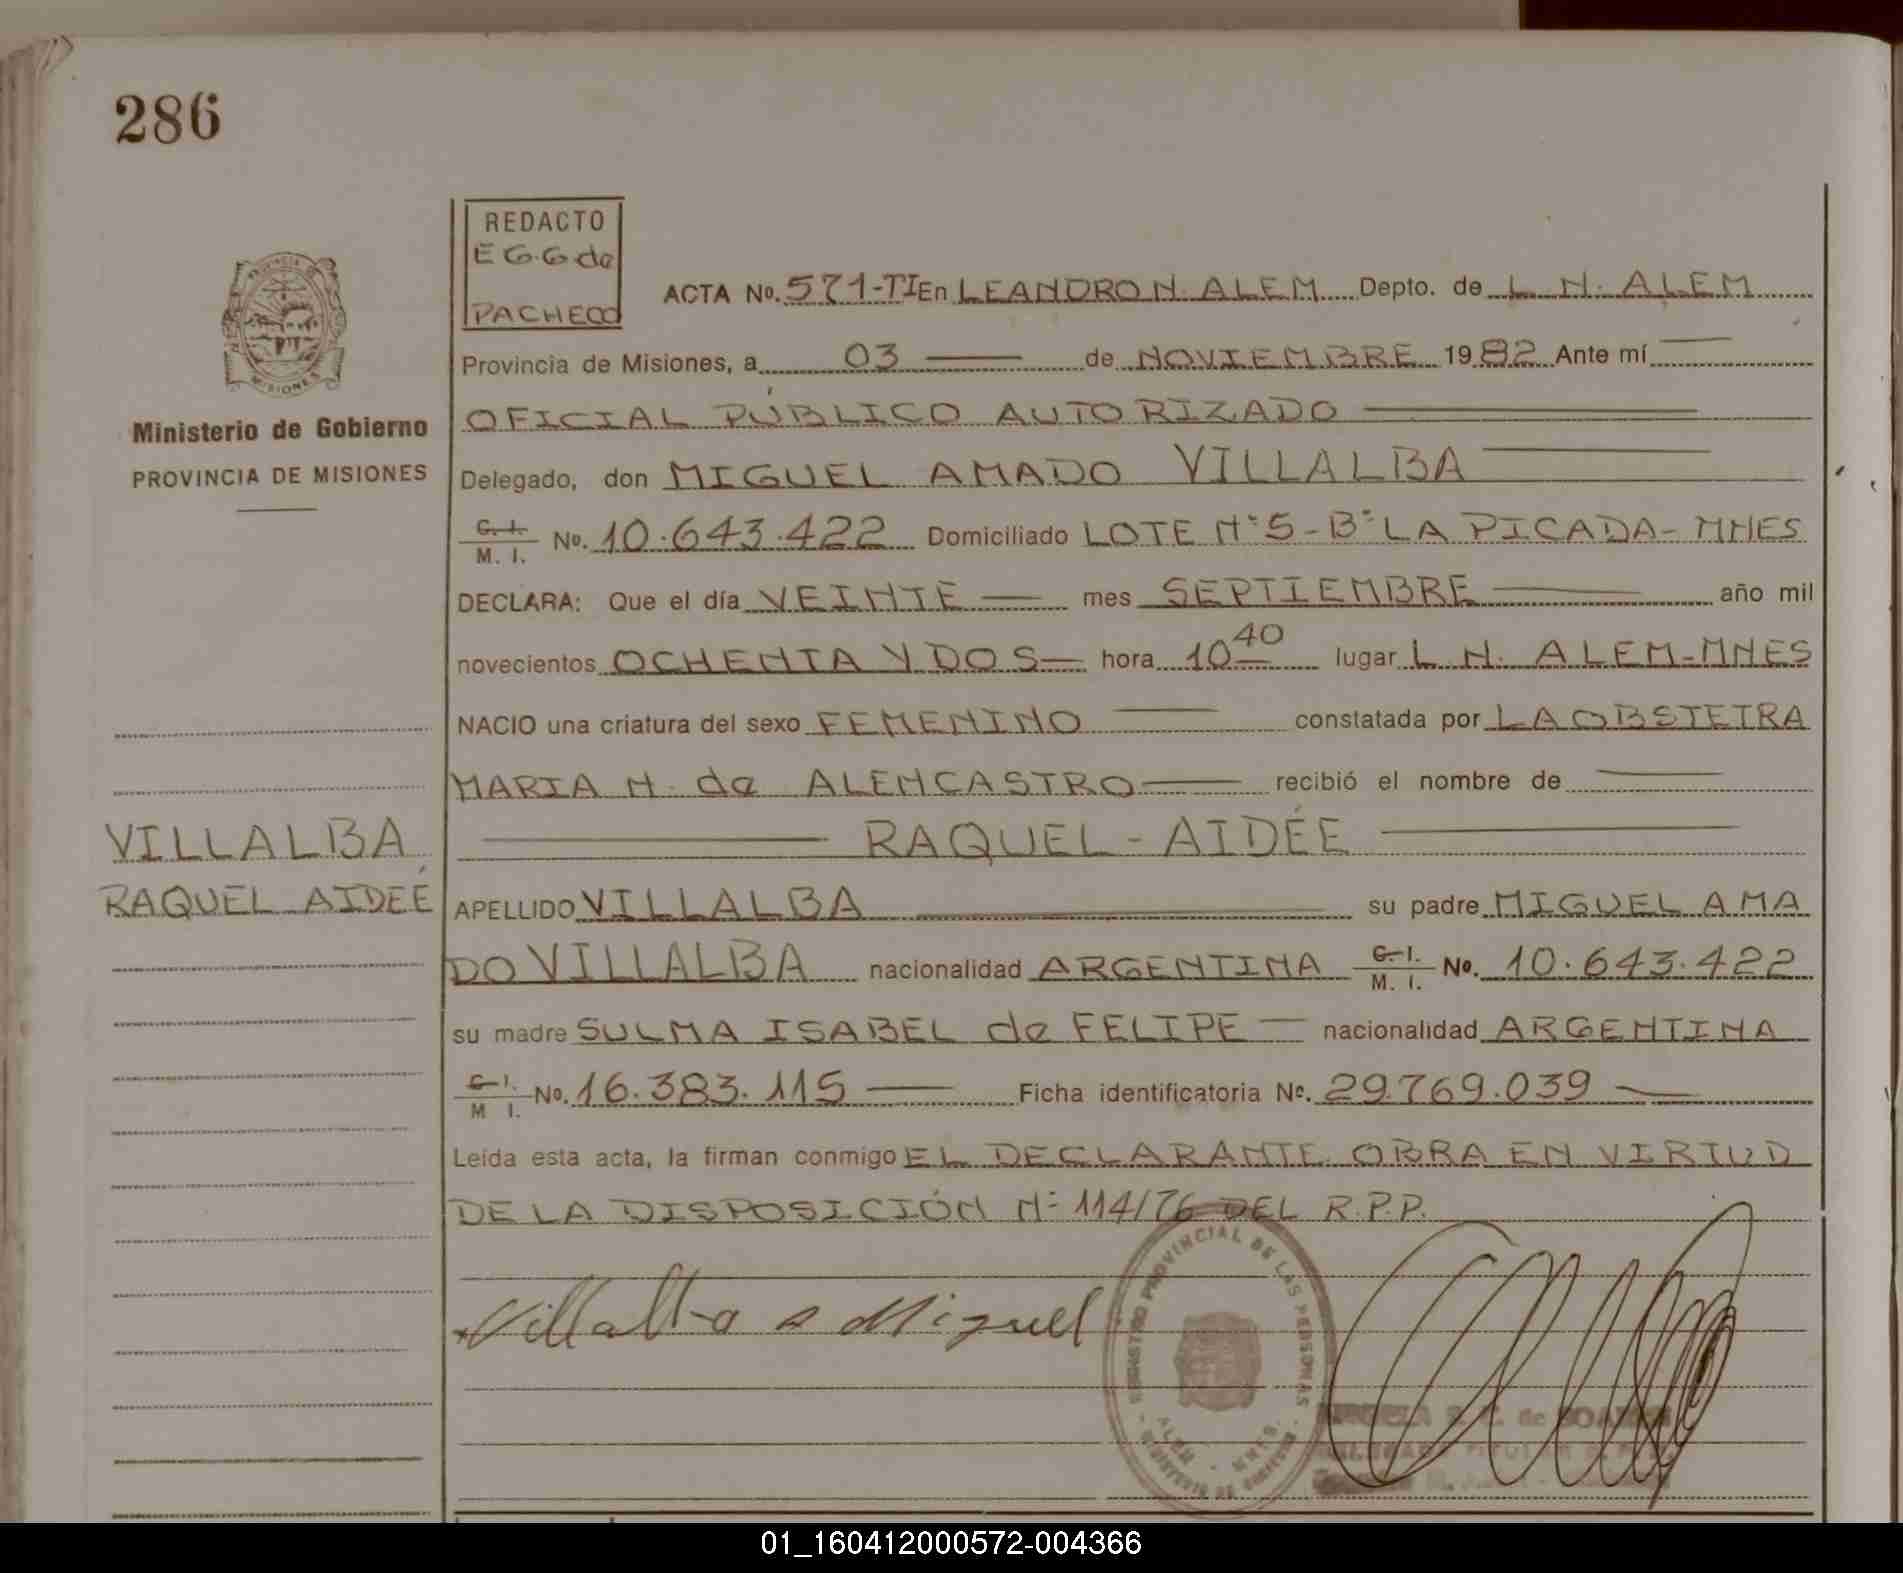 286
REDACTO
E G.G de
PACHECO
PROVINCIA DE
MISIONES
Ministerio de Gobierno
PROVINCIA DE MISIONES
ACTA No. 571-TI En LEANDRO N. ALEM Depto. de L. N. ALEM
Provincia de Misiones, a 03 de NOVIEMBRE 1982 Ante mí
OFICIAL PÚBLICO AUTORIZADO
Delegado, don MIGUEL AMADO VILLALBA
C. I. / M. I. No. 10.643.422 Domiciliado LOTE Nº 5 - Bº LA PICADA - MNES
DECLARA: Que el día VEINTE mes SEPTIEMBRE año mil
novecientos OCHENTA Y DOS hora 10 40 lugar L. N. ALEM - MNES
NACIO una criatura del sexo FEMENINO constatada por LA OBSTETRA
MARIA N. de ALENCASTRO recibió el nombre de
RAQUEL - AIDÉE
VILLALBA
RAQUEL AIDEÉ
APELLIDO VILLALBA su padre MIGUEL AMA
DO VILLALBA nacionalidad ARGENTINA C. I. / M. I. No. 10.643.422
su madre SULMA ISABEL de FELIPE nacionalidad ARGENTINA
C. I. / M I. No. 16.383.115 Ficha identificatoria Nº. 29.769.039
Leída esta acta, la firman conmigo EL DECLARANTE OBRA EN VIRTUD
DE LA DISPOSICIÓN Nº 114/76 DEL R.P.P.
Villalba a Miguel
REGISTRO PROVINCIAL DE LAS PERSONAS
ALEM - MNES.
MINISTERIO DE GOBIERNO
01_160412000572-004366